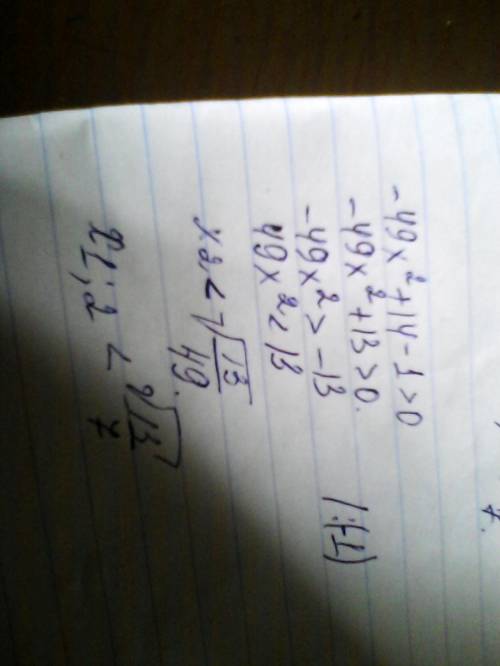 7.
-49x²+14-1>0
-49x²+13>0.
-49x²>-13 /:(-1)
49x²<13
x2<√13/49.
x1;2 < √13/7